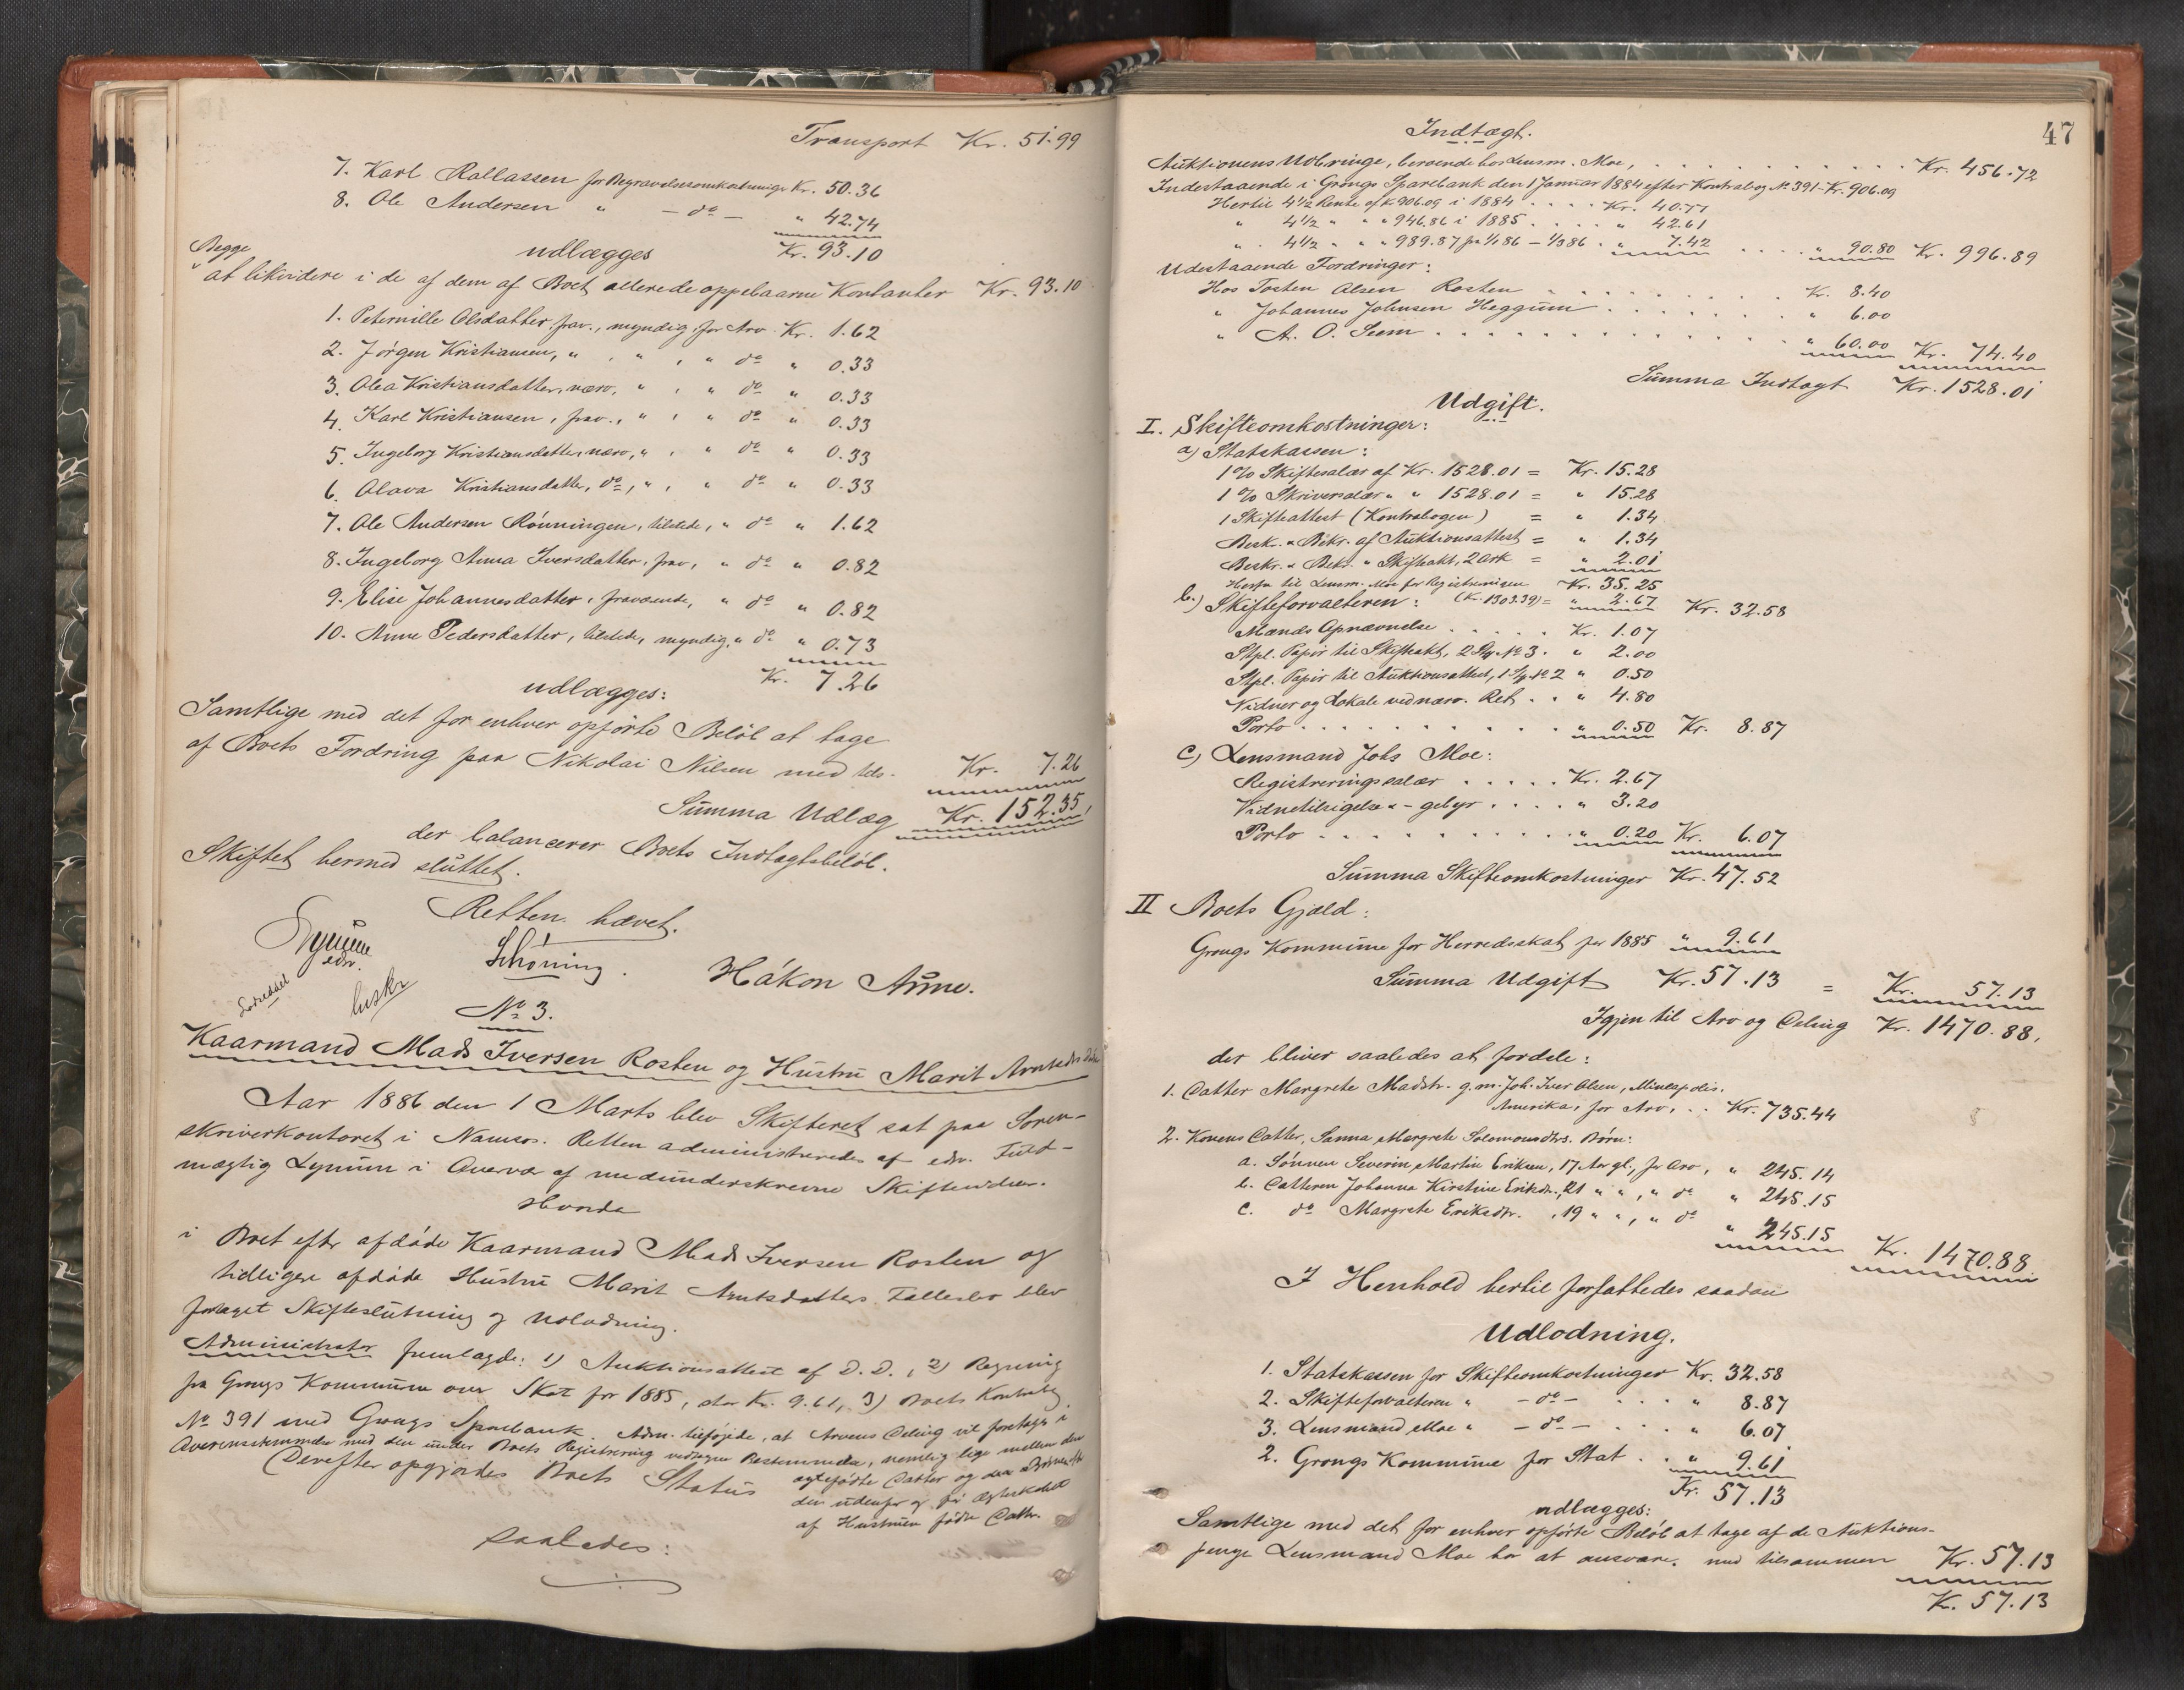 Transport Kr. 51.99
7. Karl Rallassen for Begravelsesomkostninger Kr. 50.36
8. Ole Andersen " — do — " 42.74
Begge udlægges Kr. 93.10
at likvidere i de af dem af Boet allerede oppebaarne Kontanter Kr. 93.10
1. Peternille Olsdatter, frav., myndig, for Arv Kr. 1.62
2. Jörgen Kristiansen, " , " , " do " 0.33
3. Olea Kristiansdatter, nærv., " , " do " 0.33
4. Karl Kristiansen, frav., " , " do " 0.33
5. Ingeborg Kristiansdatter, nærv., " , " do " 0.33
6. Olava Kristiansdatter, do, " , " do " 0.33
7. Ole Andersen Rönningen, tilstede, " do " 1.62
8. Ingeborg Anna Iversdatter, frav., " do " 0.82
9. Elise Johannesdatter, fraværende, " do " 0.82
10. Anne Pedersdatter, tilstede, myndig, " do " 0.73
Kr. 7.26
udlægges:
Samtlige med det for enhver opförte Belöb at tage
af Boets Fordring paa Nikolai Nilsen med tils. Kr. 7.26
Summa Udlæg Kr. 152.35,
der balancerer Boets Indtægtsbelöb.
Skiftet hermed sluttet.
Retten hævet.
Lynum
edv.
Schöning. Håkon Aune.
Lodseddel
beskr
No 3.
Kaarmand Mads Iversen Rosten og Hustru Marit Arntsdtrs Död
Aar 1886 den 1 Marts blev Skifteret sat paa Soren-
skriverkontoret i Namsos. Retten administreredes af edv. Fuld-
mægtig Lynum i Overvær af medunderskrevne Skiftevidner.
Hvorda
i Boet efter afdöde Kaarmand Mads Iversen Rosten og
tidligere afdöde Hustru Marit Arntsdatters Fællesbo blev
foretaget Skifteslutning og Udlodning.
Administrator fremlagde: 1) Auktionsattest af D. D., 2) Regning
fra Grongs Kommune over Skat for 1885, stor Kr. 9.61, 3) Boets Kontrabog
No 391 med Grongs Sparebank. Adm. tilföjede, at Arvens Deling vil foretages i
Overensstemmelse med den under Boets Registrering vedtagne Bestemmelse, nemlig lige mellem den
ægtefödte Datter og den
den udenfor og för Ægteskabet
af Hustruen födte Datter.
Derefter opgjordes Boets Status
saaledes:
47
Indtægt.
Auktionens Udbringe, beroende hos Lensm. Moe, Kr. 456.72
Indestaaende i Grongs Sparebank den 1 Januar 1884 efter Kontrabog No 391 - Kr. 906.09
Hertil 4 1/2 Rente af K. 906.09 i 1884 Kr. 40.77
" 4 1/2 " " " 946.86 i 1885 " 42.61
" 4 1/2 " " " 989.87 fra 1/1 86 - 1/3 86 " 7.42 " 90.80 Kr. 996.89
Udestaaende Fordringer:
Hos Tosten Olsen Rosten Kr. 8.40
" Johannes Johnsen Heggum " 6.00
" A. O. Seem " 60.00 Kr. 74.40
Summa Indtægt Kr. 1528.01
Udgift.
I. Skifteomkostninger:
a) Statskassen:
1 % Skiftesalær af Kr. 1528.01 = Kr. 15.28
1 % Skriversalær " " 1528.01 = " 15.28
1 Skifteattest (Kontrabogen) = " 1.34
Besk. & Bekr. af Auktionsattest = " 1.34
Beskr. & Bekr. " Skifteakt, 2 Ark = " 2.01
Kr. 35.25
Herfra til Lensm. Moe for Registreringen (Kr. 1303.39) = " 2.67 Kr. 32.58
b.) Skifteforvalteren:
Mænds Opnævnelse Kr. 1.07
Stpl. Papir til Skifteakt, 2 Stp. No 3. " 2.00
Stpl. Papir til Auktionsattest, 1 Stp. No 2 " 0.50
Vidner og Lokale ved nærv. Ret " 4.80
Porto " 0.50 Kr. 8.87
c) Lensmand Johs Moe:
Registreringssalær Kr. 2.67
Vidnetilsigelse & - gebyr " 3.20
Porto " 0.20 Kr. 6.07
Summa Skifteomkostninger Kr. 47.52
II Boets Gjæld:
Grongs Kommune for Herredsskat for 1885 " 9.61
Summa Udgift Kr. 57.13 = Kr. 57.13
Igjen til Arv og Deling Kr. 1470.88,
der bliver saaledes at fordele:
1. Datter Margrete Madsdtr. g. m. Joh. Iver Olsen, Mineapolis.
Amerika, for Arv, Kr. 735.44
2. Konens Datter, Sanna Margrete Solomonsdtrs. Börn:
a. Sönnen Severin Martin Eriksen, 17 Aar gl., for Arv, " 245.14
b. Datteren Johanna Kirstine Eriksdtr., 21 " " , " do " 245.15
c. do Margrete Eriksdtr., 19 " " , " do " 245.15 Kr. 1470.88.
I Henhold hertil forfattedes saadan
Udlodning.
1. Statskassen for Skifteomkostninger Kr. 32.58
2. Skifteforvalteren " — do — " 8.87
3. Lensmand Moe " — do — " 6.07
2. Grongs Kommune for Skat " 9.61
Kr. 57.13
udlægges:
Samtlige med det for enhver opförte Belöb at tage af de Auktions-
penge Lensmand Moe har at ansvare, med tilsammen Kr. 57.13
Kr. 57.13